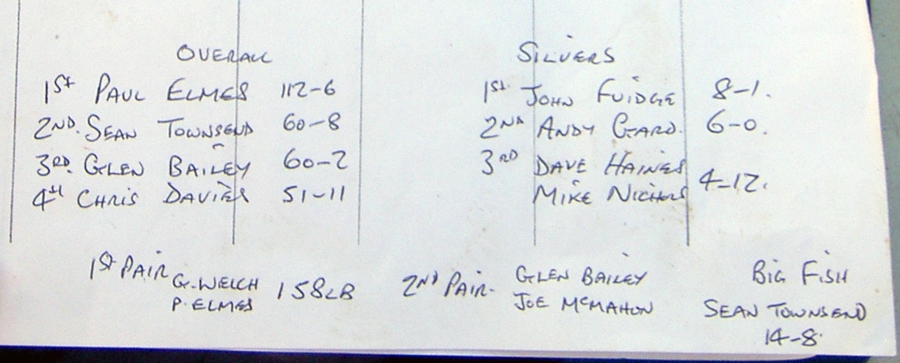 OVERALL
1st PAUL ELMES 112-6
2ND. SEAN TOWNSEND 60-8
3RD. GLEN BAILEY 60-2
4th CHRIS DAVIES 51-11
SILVERS
1st. JOHN FUIDGE 8-1.
2ND ANDY GEARD. 6-0.
3RD DAVE HAINES
MIKE NICHOLS 4-12.
1st PAIR G.WELCH
P.ELMES 158LB
2ND PAIR. GLEN BAILEY
JOE McMAHON
BIG FISH
SEAN TOWNSEND
14-8.